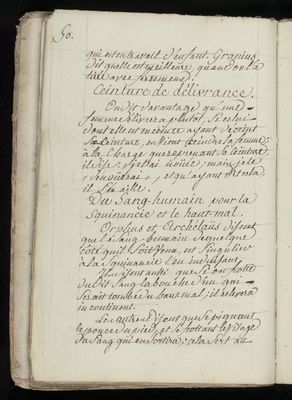 50.
qui est en travail d'enfant. Granius
dit qu'elle est meilleure, quand on l'a
tiré avec ferrement.
Ceinture de délivrance.
On dit davantage qu'une
femme delivrera plutôt, si celui
dont elle est enceinte ayant déceint
sa ceinture, en vient ceindre la femme;
à la charge que reprenant sa ceinture,
il dise: je t'ai liée; mais je te
, et qu'ayant dit cela
il s'en aille.
Du Sang humain pour la
Squinancie et le haut-mal.
Orpheus et Archelaüs disent
que le sang humain de quelque
côté qu'il soit
à la Squinancie l'en induisant.
Ils disent aussi que si on frotte
dudit sang la bouche d'un qui
serait tombé du haut mal, il relevera
incontinent.
Les autres disent que si piquant
le pouce du pied, et frottant le visage
du sang qui en sortira; cela sert au